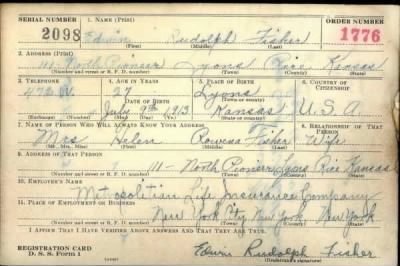 SERIAL NUMBER 1. NAME (Print) ORDER NUMBER
2098 Edwin Rudolph Fisher 1776
(First) (Middle) (Last)
2. ADDRESS (Print)
111 North Pioneer Lyons Rice Kansas
(Number and street or R. F. D. number) (Town) (County) (State)
3. TELEPHONE 4. AGE IN YEARS 5. PLACE OF BIRTH 6. COUNTRY OF CITIZENSHIP
472 W. 27 Lyons
DATE OF BIRTH (Town or county)
July 9th 1913 Kansas U.S.A.
(Exchange) (Number) (Mo.) (Day) (Yr.) (State or country)
7. NAME OF PERSON WHO WILL ALWAYS KNOW YOUR ADDRESS 8. RELATIONSHIP OF THAT PERSON
Mrs Helen Rowena Fisher Wife
(Mr., Mrs., Miss) (First) (Middle) (Last)
9. ADDRESS OF THAT PERSON
111 - North Pioneer Lyons Rice Kansas
(Number and street or R. F. D. number) (Town) (County) (State)
10. EMPLOYER'S NAME
Metropolitian Life Insurance Company
11. PLACE OF EMPLOYMENT OR BUSINESS
New York City New York, New York
(Number and street or R. F. D. number) (Town) (County) (State)
I AFFIRM THAT I HAVE VERIFIED ABOVE ANSWERS AND THAT THEY ARE TRUE.
REGISTRATION CARD
D. S. S. Form 1 Edwin Rudolph Fisher
(Registrant's signature)